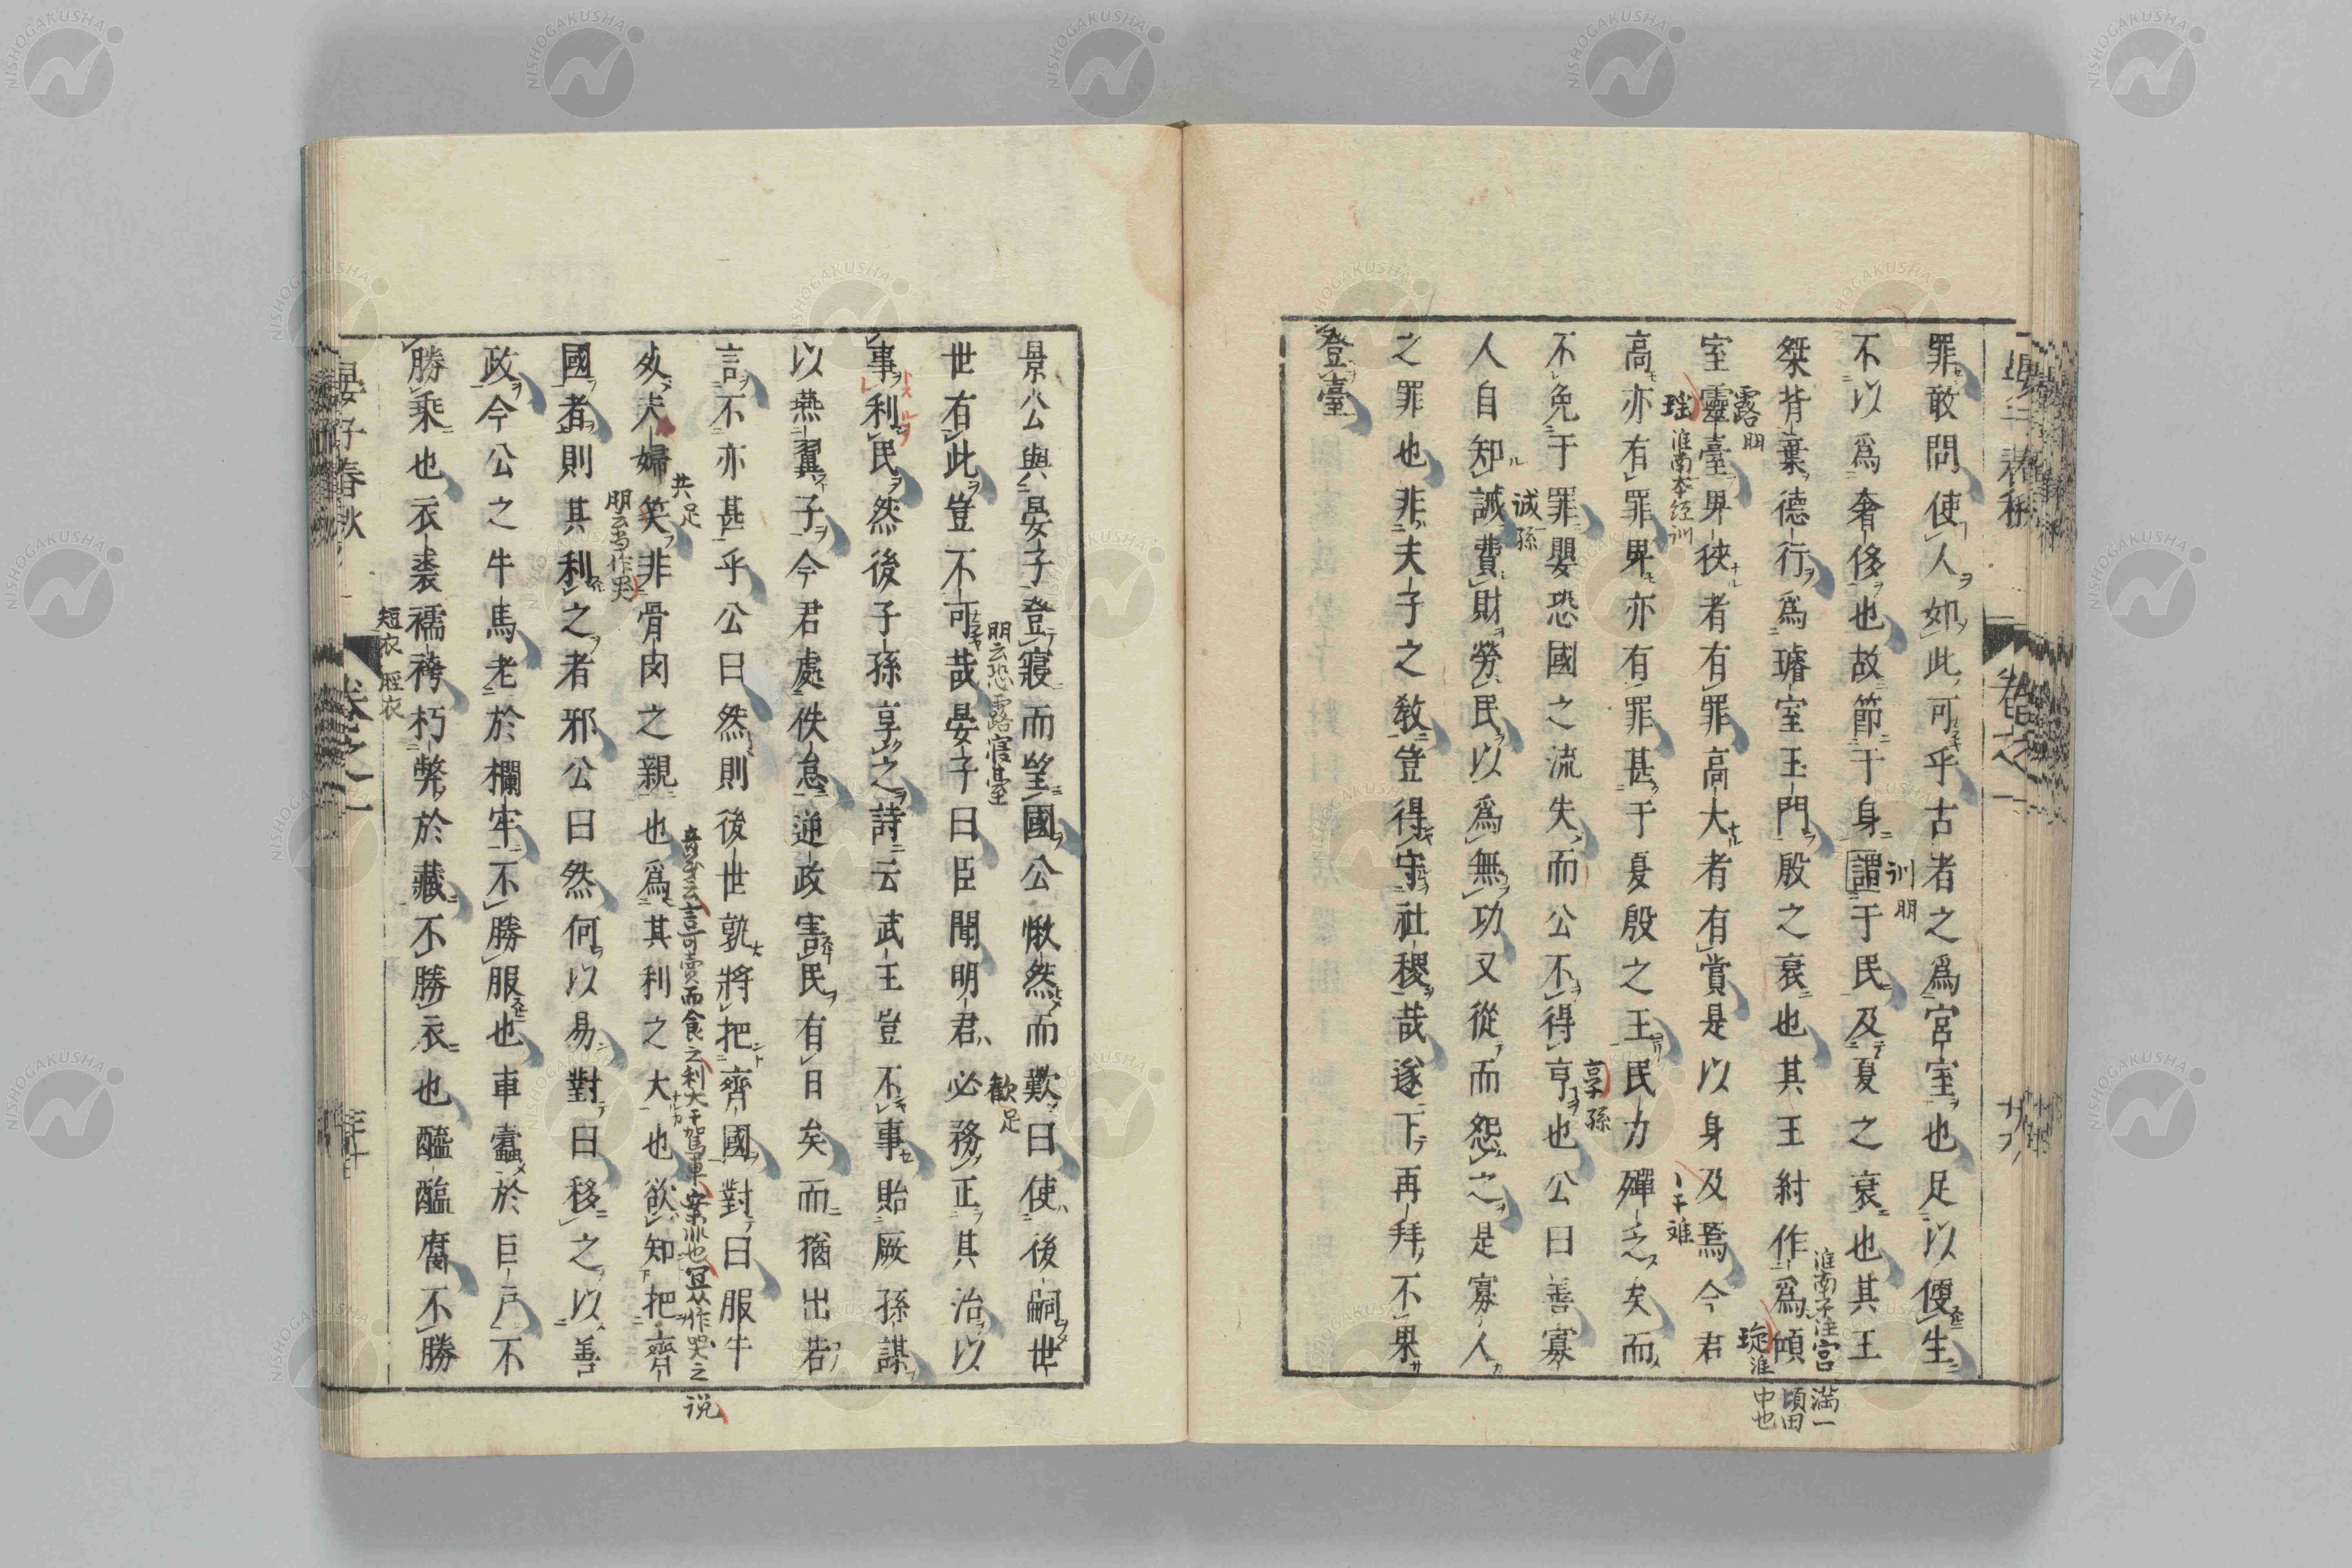 罪敢問使人如此可乎古者之爲宮室也足以便生
不以爲奢侈也故節于身謂于民及夏之衰也其王
桀背棄德行爲璿室玉門殷之衰也其王紂作爲傾
室靈臺卑狹者有罪高大者有賞是以身及焉今君
高亦有罪卑亦有罪甚于夏殷之王民力殫乏矣而
不免于罪嬰恐國之流失而公不得亨也公曰善寡
人自知誠費財勞民以爲無功又從而怨之是寡人
之罪也非夫子之教豈得守社稷哉遂下再拜不果
登臺
訓明
淮南子注宮滿一
頃田
中也
璇淮
露明
瑤淮南本經訓
享孫
誠孫
景公與晏子登寢而望國公愀然而歎曰使後嗣世
世有此豈不可哉晏子曰臣聞明君必務正其治以
事利民然後子孫享之詩云武王豈不事貽厥孫謀
以燕翼子今君處佚怠逆政害民有日矣而猶出若
言不亦甚乎公曰然則後世孰將把齊國對曰服牛
夂夫婦笑非骨肉之親也爲其利之大也欲知把齊
國者則其利之者邪公曰然何以易對曰移之以善
政今公之牛馬老於欄牢不勝服也車蠹於巨戶不
勝乘也衣裘襦袴朽弊於藏不勝衣也醯醢腐不勝
明云恐露寢臺
歡足
共足
明云当作哭
短衣 脛衣
晏子春秋
卷之一
三十